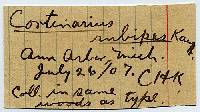 Cortinarius
rubipes Kauf.
Ann Arbor, Mich.
July 26/07. CHK
Coll. in same
woods as type